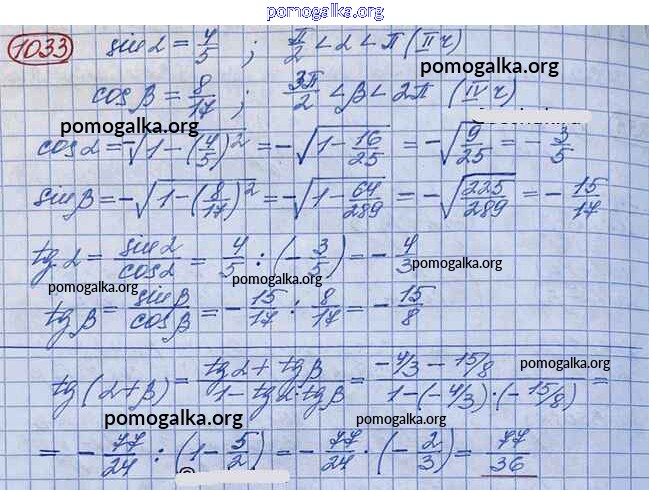 pomogalka.org
1033 sin α = 4/5 ; π/2 < α < π (II ч)
pomogalka.org
cos β = 8/17 ; 3π/2 < β < 2π (IV ч)
pomogalka.org
cos α = -√(1-(4/5)²) = -√(1-16/25) = -√(9/25) = -3/5
sin β = -√(1-(8/17)²) = -√(1-64/289) = -√(225/289) = -15/17
tg α = sin α/cos α = 4/5 : (-3/5) = -4/3
pomogalka.org
pomogalka.org
pomogalka.org
tg β = sin β/cos β = -15/17 : 8/17 = -15/8
pomogalka.org
tg(α+β) = (tg α + tg β)/(1 - tg α · tg β) = (-4/3 - 15/8)/(1-(-4/3)·(-15/8)) =
pomogalka.org
= -77/24 : (1 - 5/2) = -77/24 · (-2/3) = 77/36